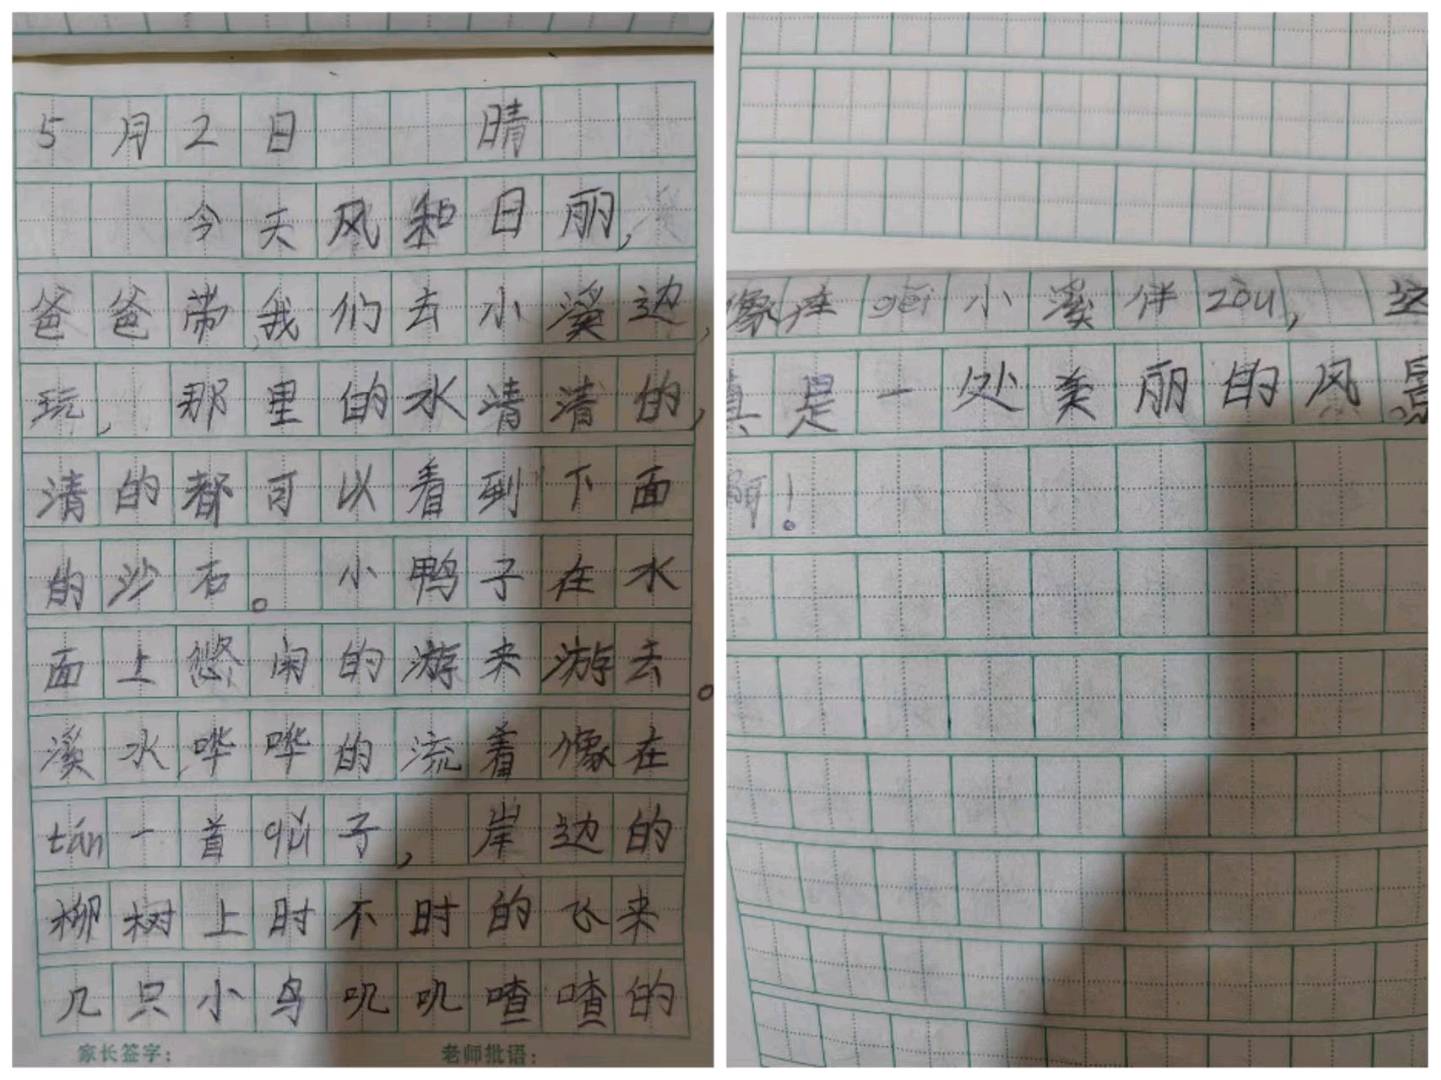 5月2日 晴
今天风和日丽,
爸爸带我们去小溪边,
玩,那里的水清清的,
清的都可以看到下面
的沙石。小鸭子在水
面上悠闲的游来游去。
溪水哗哗的流着像在
tán一首qǔ子,岸边的
柳树上时不时的飞来
几只小鸟叽叽喳喳的
家长签字:
老师批语:
像在gěi小溪伴zòu,这
真是一处美丽的风景
啊!